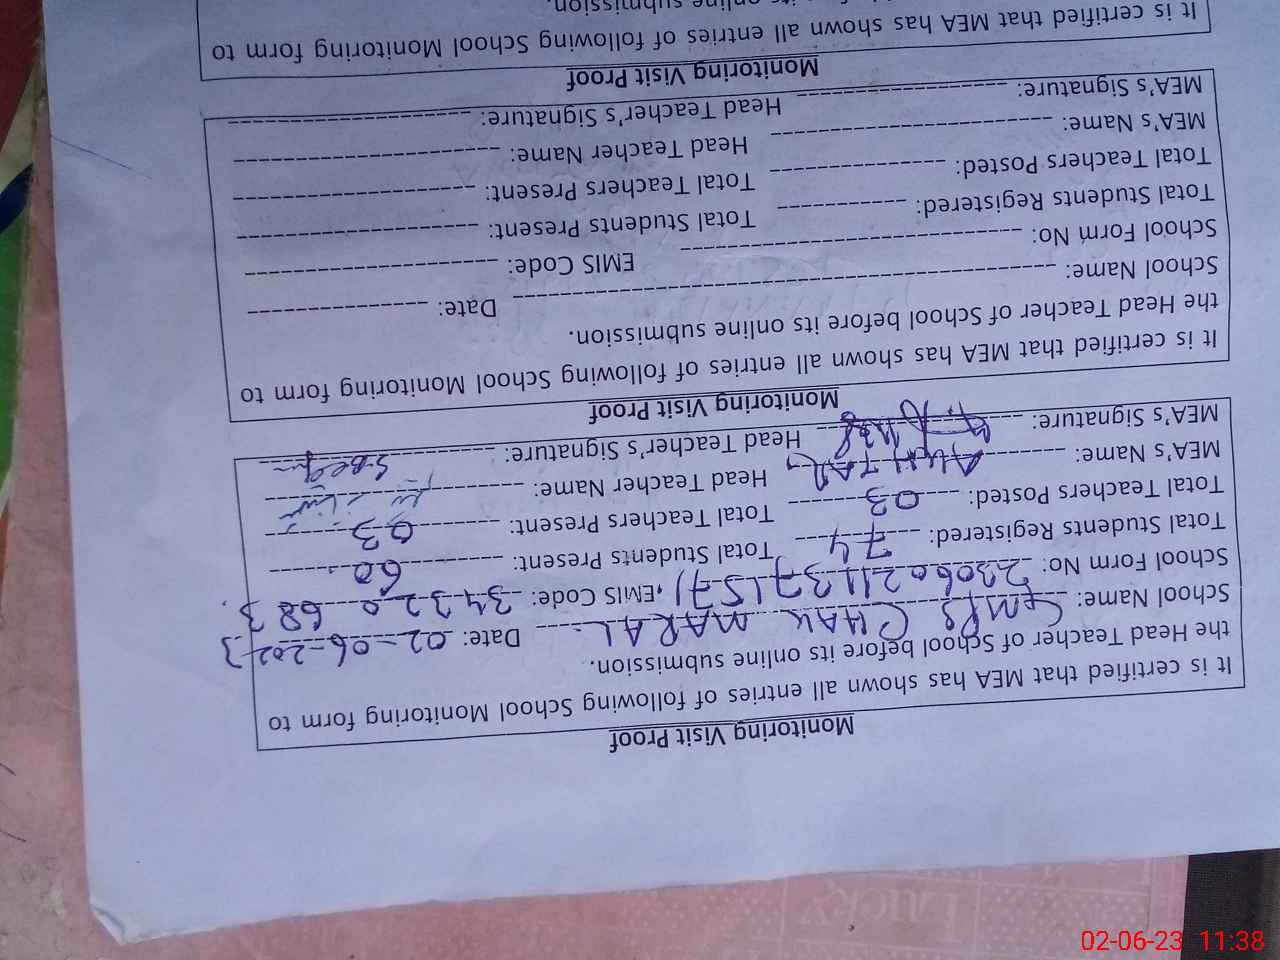 Monitoring Visit Proof
It is certified that MEA has shown all entries of following School Monitoring form to
the Head Teacher of School before its online submission.
School Name: GMPS CHAK MARAL Date: 02-06-2023
School Form No: 2306021137157) EMIS Code: 34320683
Total Students Registered: 74 Total Students Present: 60
Total Teachers Posted: 03 Total Teachers Present: 03
MEA's Name: Head Teacher Name:
MEA's Signature: Head Teacher's Signature: S.Begum
Monitoring Visit Proof
It is certified that MEA has shown all entries of following School Monitoring form to
the Head Teacher of School before its online submission.
School Name: Date:
School Form No: EMIS Code:
Total Students Registered: Total Students Present:
Total Teachers Posted: Total Teachers Present:
MEA's Name: Head Teacher Name:
MEA's Signature: Head Teacher's Signature:
Monitoring Visit Proof
It is certified that MEA has shown all entries of following School Monitoring form to
its online submission.
LUCKY
02-06-23 11:38